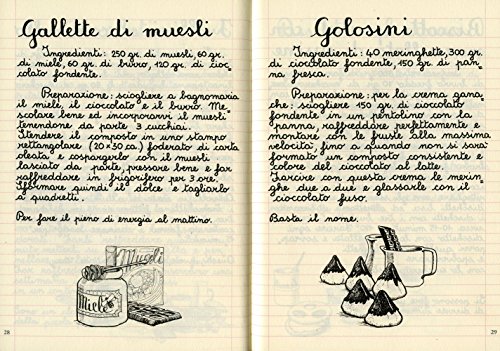 Gallette di muesli
Ingredienti: 250 gr. di muesli, 60 gr.
di miele, 60 gr. di burro, 120 gr. di cioc=
colato fondente.
Preparazione: sciogliere a bagnomaria
il miele, il cioccolato e il burro. Me_
scolare bene ed incorporarvi il muesli
tenendone da parte 3 cucchai.
Stendere il composto in uno stampo
rettangolare (20×30 ca.) foderato di carta
oleata e cospargerlo con il muesli
lasciato da parte, pressare bene e far
raffreddare in frigorifero per 3 ore.
Sformare quindi il dolce e tagliarlo
a quadretti.
Per fare il pieno di energia al mattino.
Muesli
Miele
28
Golosini
Ingredienti: 40 meringhette, 300 gr.
di cioccolato fondente, 150 gr. di pan_
na fresca.
Preparazione: per la crema gana_
che: sciogliere 150 gr. di cioccolato
fondente in un pentolino con la
panna, raffreddare perfettamente e
montare con le fruste alla massima
velocità, fino a quando non si sarà
formato un composto consistente e
colore del cioccolato al latte.
Farcire con questa crema le merin_
ghe due a due e glassarle con il
cioccolato fuso.
Basta il nome.
29